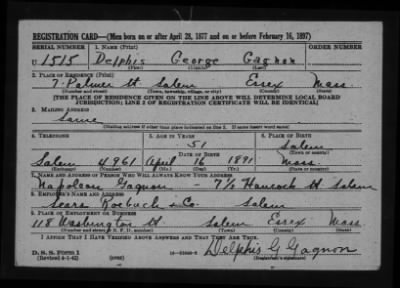 REGISTRATION CARD—(Men born on or after April 28, 1877 and on or before February 16, 1897)
SERIAL NUMBER 1. NAME (Print) ORDER NUMBER
U 1515 Delphis George Gagnon
(First) (Middle) (Last)
2. PLACE OF RESIDENCE (Print)
7 Palmer St Salem Essex Mass.
(Number and street) (Town, township, village, or city) (County) (State)
[THE PLACE OF RESIDENCE GIVEN ON THE LINE ABOVE WILL DETERMINE LOCAL BOARD
JURISDICTION; LINE 2 OF REGISTRATION CERTIFICATE WILL BE IDENTICAL]
3. MAILING ADDRESS
Same
[Mailing address if other than place indicated on line 2. If same insert word same]
4. TELEPHONE 5. AGE IN YEARS 6. PLACE OF BIRTH
51 Salem
DATE OF BIRTH (Town or county)
Salem 4961 April 16 1891 Mass.
(Exchange) (Number) (Mo.) (Day) (Yr.) (State or country)
7. NAME AND ADDRESS OF PERSON WHO WILL ALWAYS KNOW YOUR ADDRESS
Napoleon Gagnon Hancock St Salem
8. EMPLOYER'S NAME AND ADDRESS
Sears Roebuck & Co. Salem
9. PLACE OF EMPLOYMENT OR BUSINESS
118 Washington St Salem Essex Mass
(Number and street or R. F. D. number) (Town) (County) (State)
I AFFIRM THAT I HAVE VERIFIED ABOVE ANSWERS AND THAT THEY ARE TRUE.
D. S. S. Form 1
(Revised 4-1-42) (over) Delphis G Gagnon
(Registrant's signature)